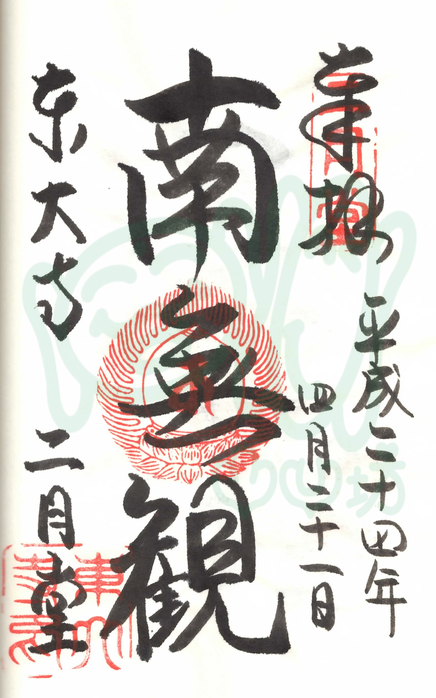 奉拝
平成二十四年
四月二十一日
南無観
東大寺 二月堂